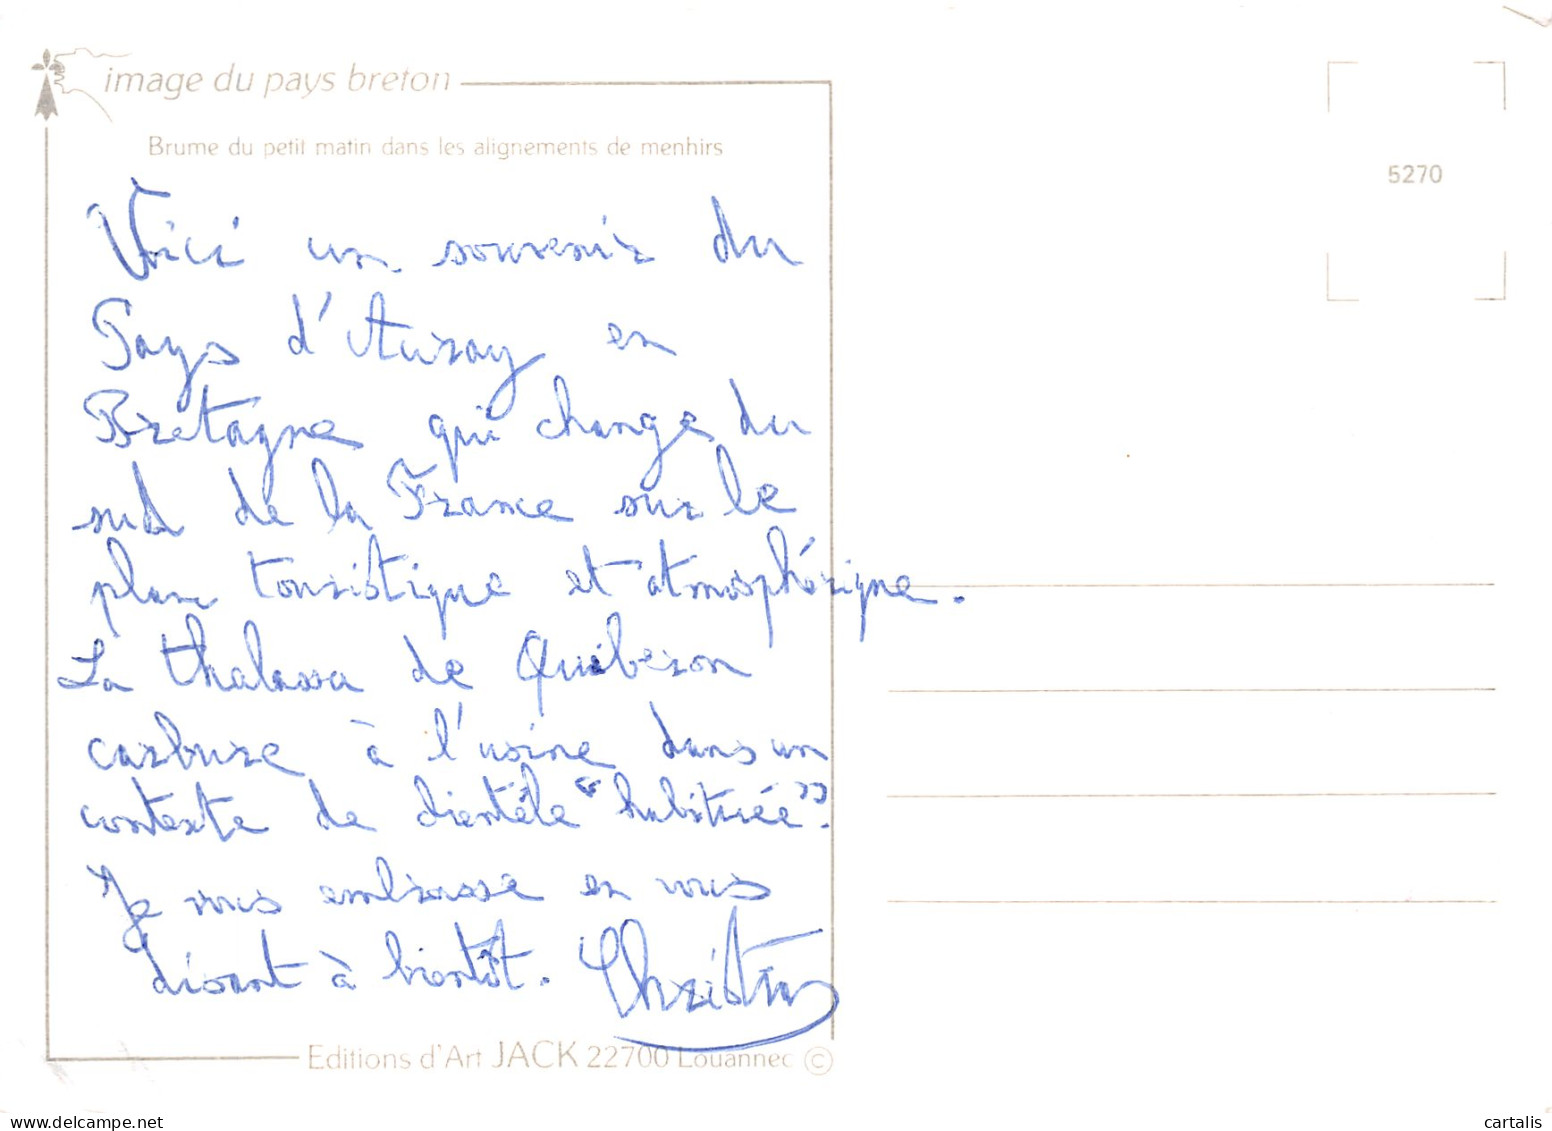 image du pays breton
Brume du petit matin dans les alignements de menhirs
5270
Voici un souvenir du
Pays d'Auray en
Bretagne qui change du
sud de la France sur le
plan touristique et atmosphérique.
La thalassa de Quiberon
carbure à l'usine dans un
contexte de clientèle "habituée".
Je vous embrasse en vous
disant à bientôt. Christian
Editions d'Art JACK 22700 Louannec ©
cartalis